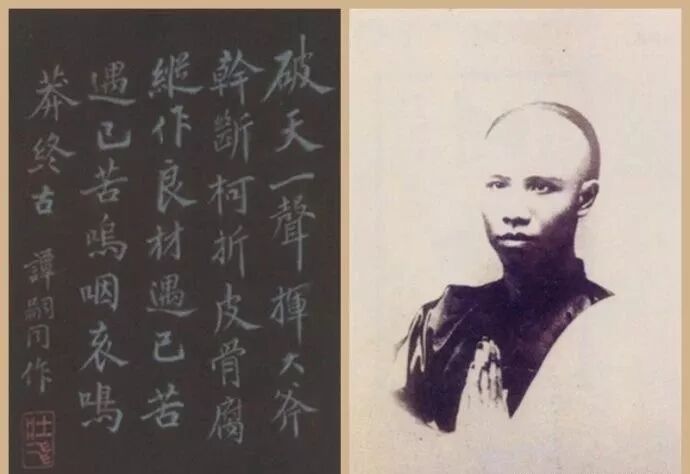 破天一聲揮大斧
幹斷柯折皮骨腐
縱作良材遇已苦
遇已苦嗚咽哀鳴
莽終古
譚嗣同作
壯飛